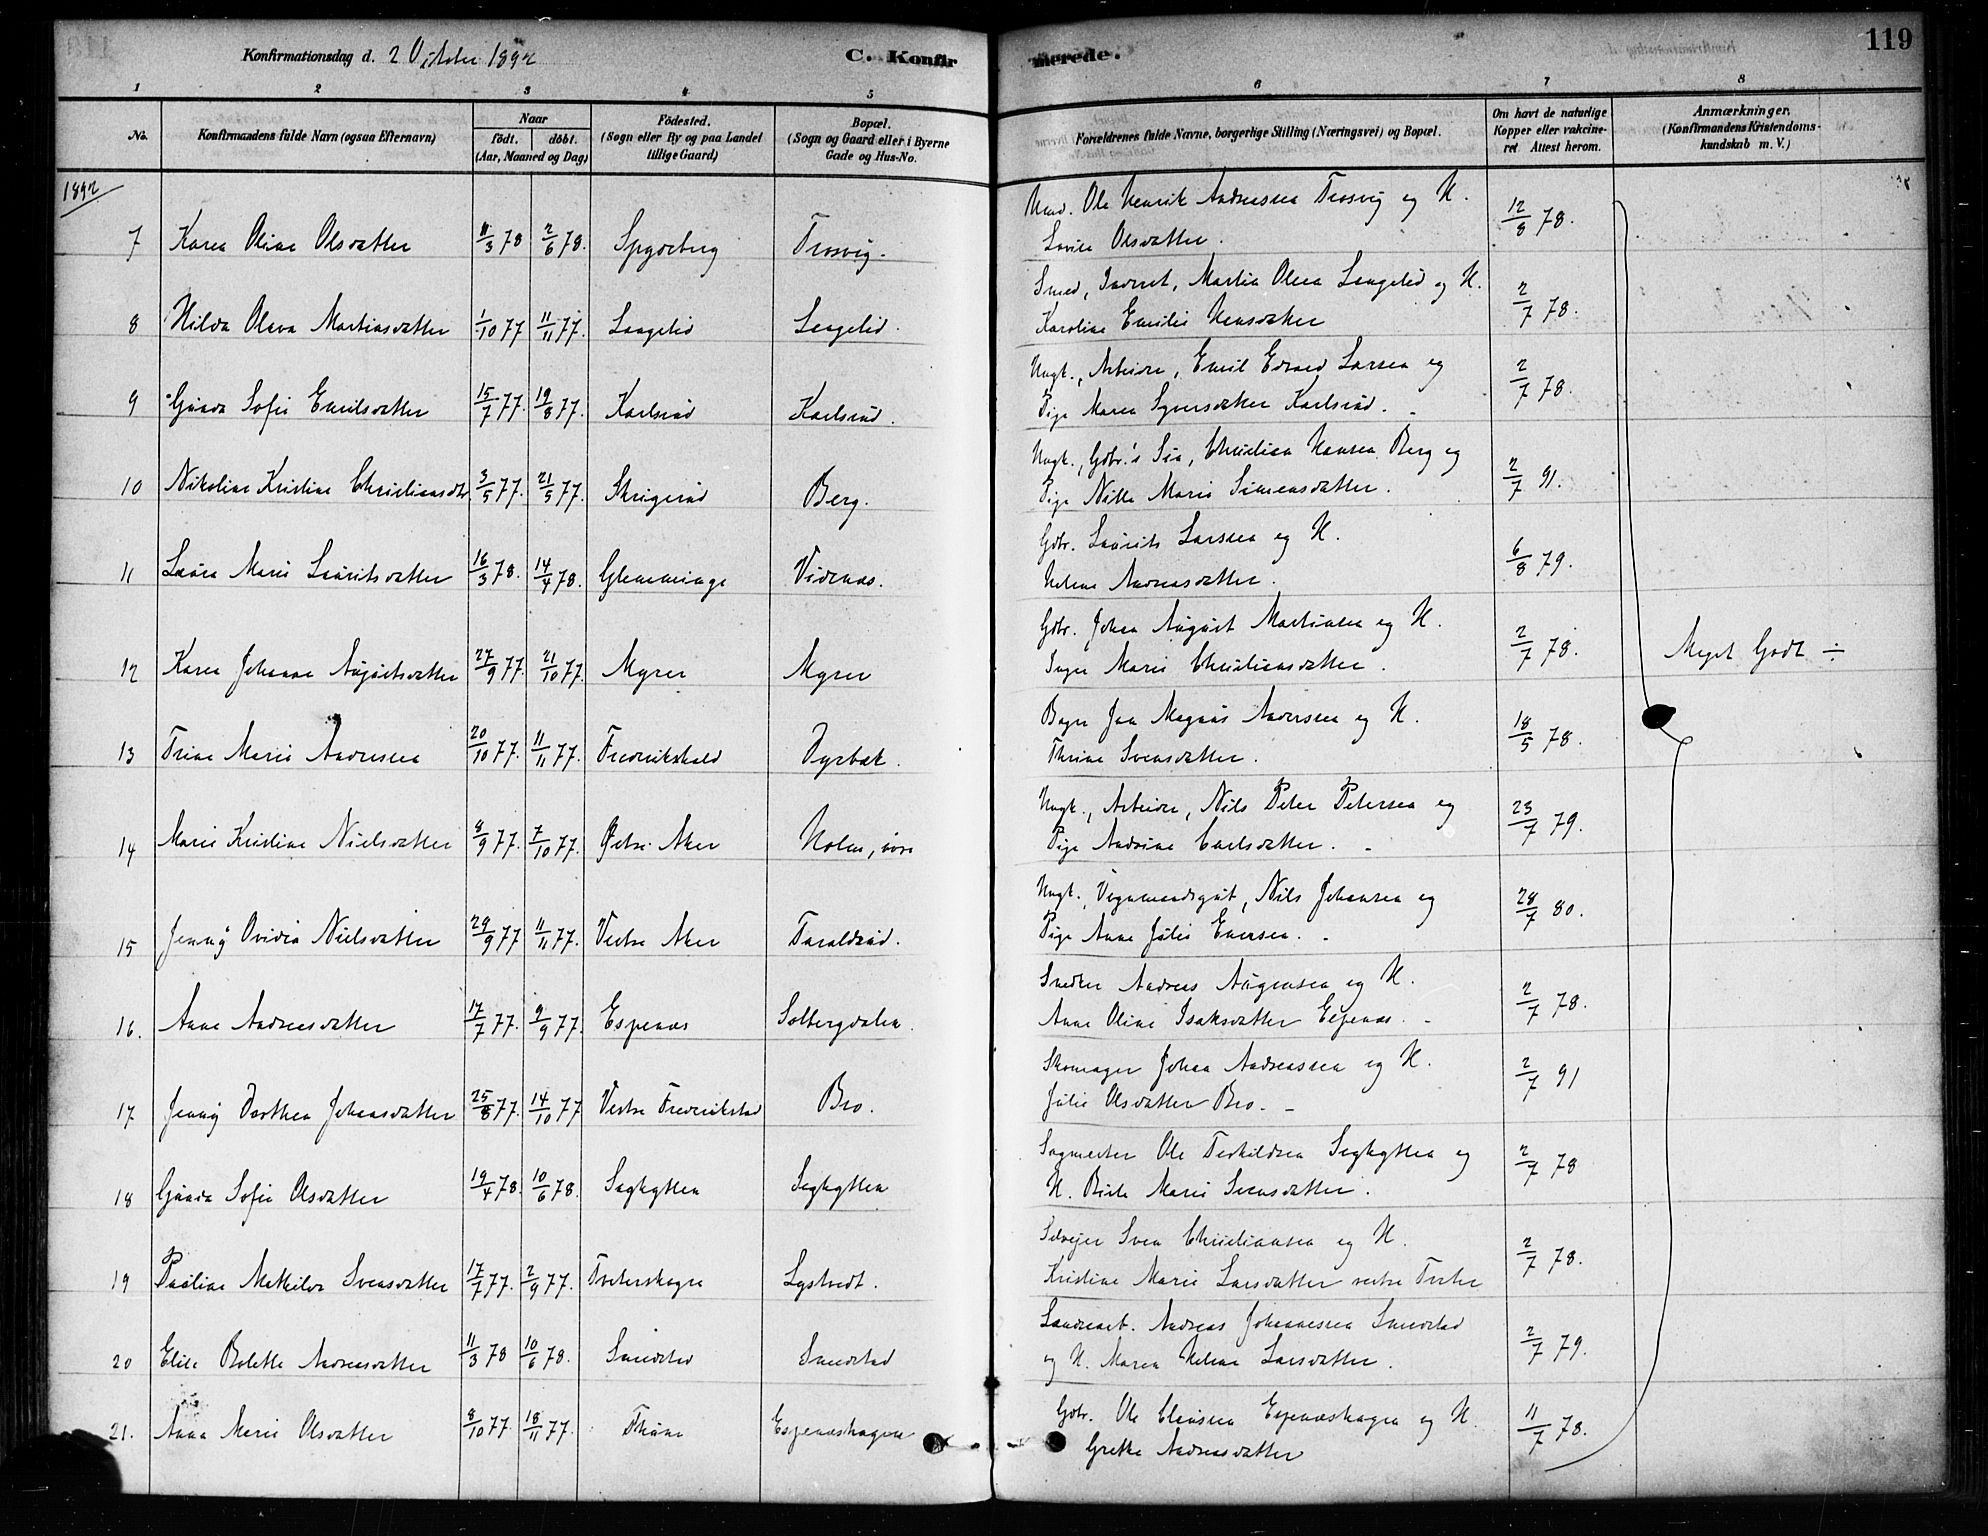 119
Konfirmationsdag d. 2 October 1892
C. Konfirmerede.
1 2 3 4 5 6 7 8
No.
Konfirmandens fulde Navn (ogsaa Efternavn)
Naar
født. døbt.
(Aar, Maaned og Dag)
Fødested.
(Sogn eller By og paa Landet
tillige Gaard)
Bopæl.
(Sogn og Gaard eller i Byerne
Gade og Hus-No.
Forældrenes fulde Navne, borgerlige Stilling (Næringsvei) og Bopæl.
Om havt de naturlige
Kopper eller vakcine-
ret Attest herom.
Anmærkninger.
(Konfirmandens Kristendoms-
kundskab m. V.)
1892
Ole Henrik Andreassen Trosvig og H.
7 Karen Oline Olsdatter 11/3 78 2/6 78. Spydeberg Trosvig. Lovise Olsdatter. 12/8 78.
Smed, Martin Olsen Langelid og H.
8 Hilda Olava Martinsdatter 1/10 77 11/11 77. Langelid Langelid. Karoline Emilie Hensdatter 2/7 78.
Ungk., Arbeider, Emil Edvard Larsen og
9 Gunda Sofie Emilsdatter 15/7 77. 19/8 77. Karlsrud Karlsrud. Pige Maren Syversdatter Karlsrud. 2/7 78.
Ungk., Gdbr.'s Søn, Christian Hansen Berg og
10 Nikoline Kristine Christiansdtr. 3/5 77. 21/5 77. Skrigerud Berg. Pige Nille Marie Simensdatter. 2/7 91.
Gdbr. Laurits Larsen og H.
11 Laura Marie Lauritsdatter 16/3 78. 14/4 78. Glemminge Vidnæs. Helene Andreasdatter. 6/8 79.
Gdbr. Johan August Martinsen og H.
12 Karen Johanne Augustsdatter 27/9 77. 21/10 77. Myrer Myrer Inger Marie Christiansdatter. 2/7 78. Meget Godt ÷
Bager Jan Magnus Andersen og H.
13 Trine Marie Andresen 20/10 77. 11/11 77. Fredrikshald Dyrbæk. Thrine Svensdatter. 18/5 78.
Ungk., Arbeider, Nils Peter Petersen og
14 Marie Kristine Nielsdatter 8/9 77. 7/10 77. Østre Aker Holm, Pige Andrine Carlsdatter. 23/7 79.
Ungk., Nils Johansen og
15 Jenny Ovidia Nielsdatter 29/9 77 11/11 77. Vestre Aker Taraldrud. Pige Anne Julie Eversen. 28/7 80.
Snedker Andreas Augensen og H.
16. Anne Andreasdatter 17/7 77. 9/9 77. Espenæs Solbergdalen. Anne Oline Isaksdatter Espenæs. 2/7 78.
Skomager Johan Andreassen og H.
17 Jenny Dorthea Johansdatter 25/8 77. 14/10 77 Vestre Fredrikstad Bro. Julie Olsdatter Bro. 2/7 91
Sagmester Ole Terkildsen Saghytten og
18 Gunda Sofie Olsdatter 19/4 78. 10/6 78. Saghytten Saghytten H. Berte Marie Svensdatter. 2/7 78
Selveier Sven Christiansen og H.
19 Pauline Mathilde Svensdatter 17/7 77. 2/9 77. Tveterskogen Lystvedt. Kristine Marie Larsdatter vestre Tveter 2/7 78.
Andreas Johannessen Smedstad
20 Elise Bolette Andreasdatter 11/3 78 10/6 78. Smedstad Smedstad og H. Maren Helene Larsdatter. 2/7 79.
Gdbr. Ole Clausen Espenæshagen og H.
21. Anna Marie Olsdatter 8/10 77. 18/11 77. Thune Espenæshagen Grethe Andreasdatter 11/7 78.